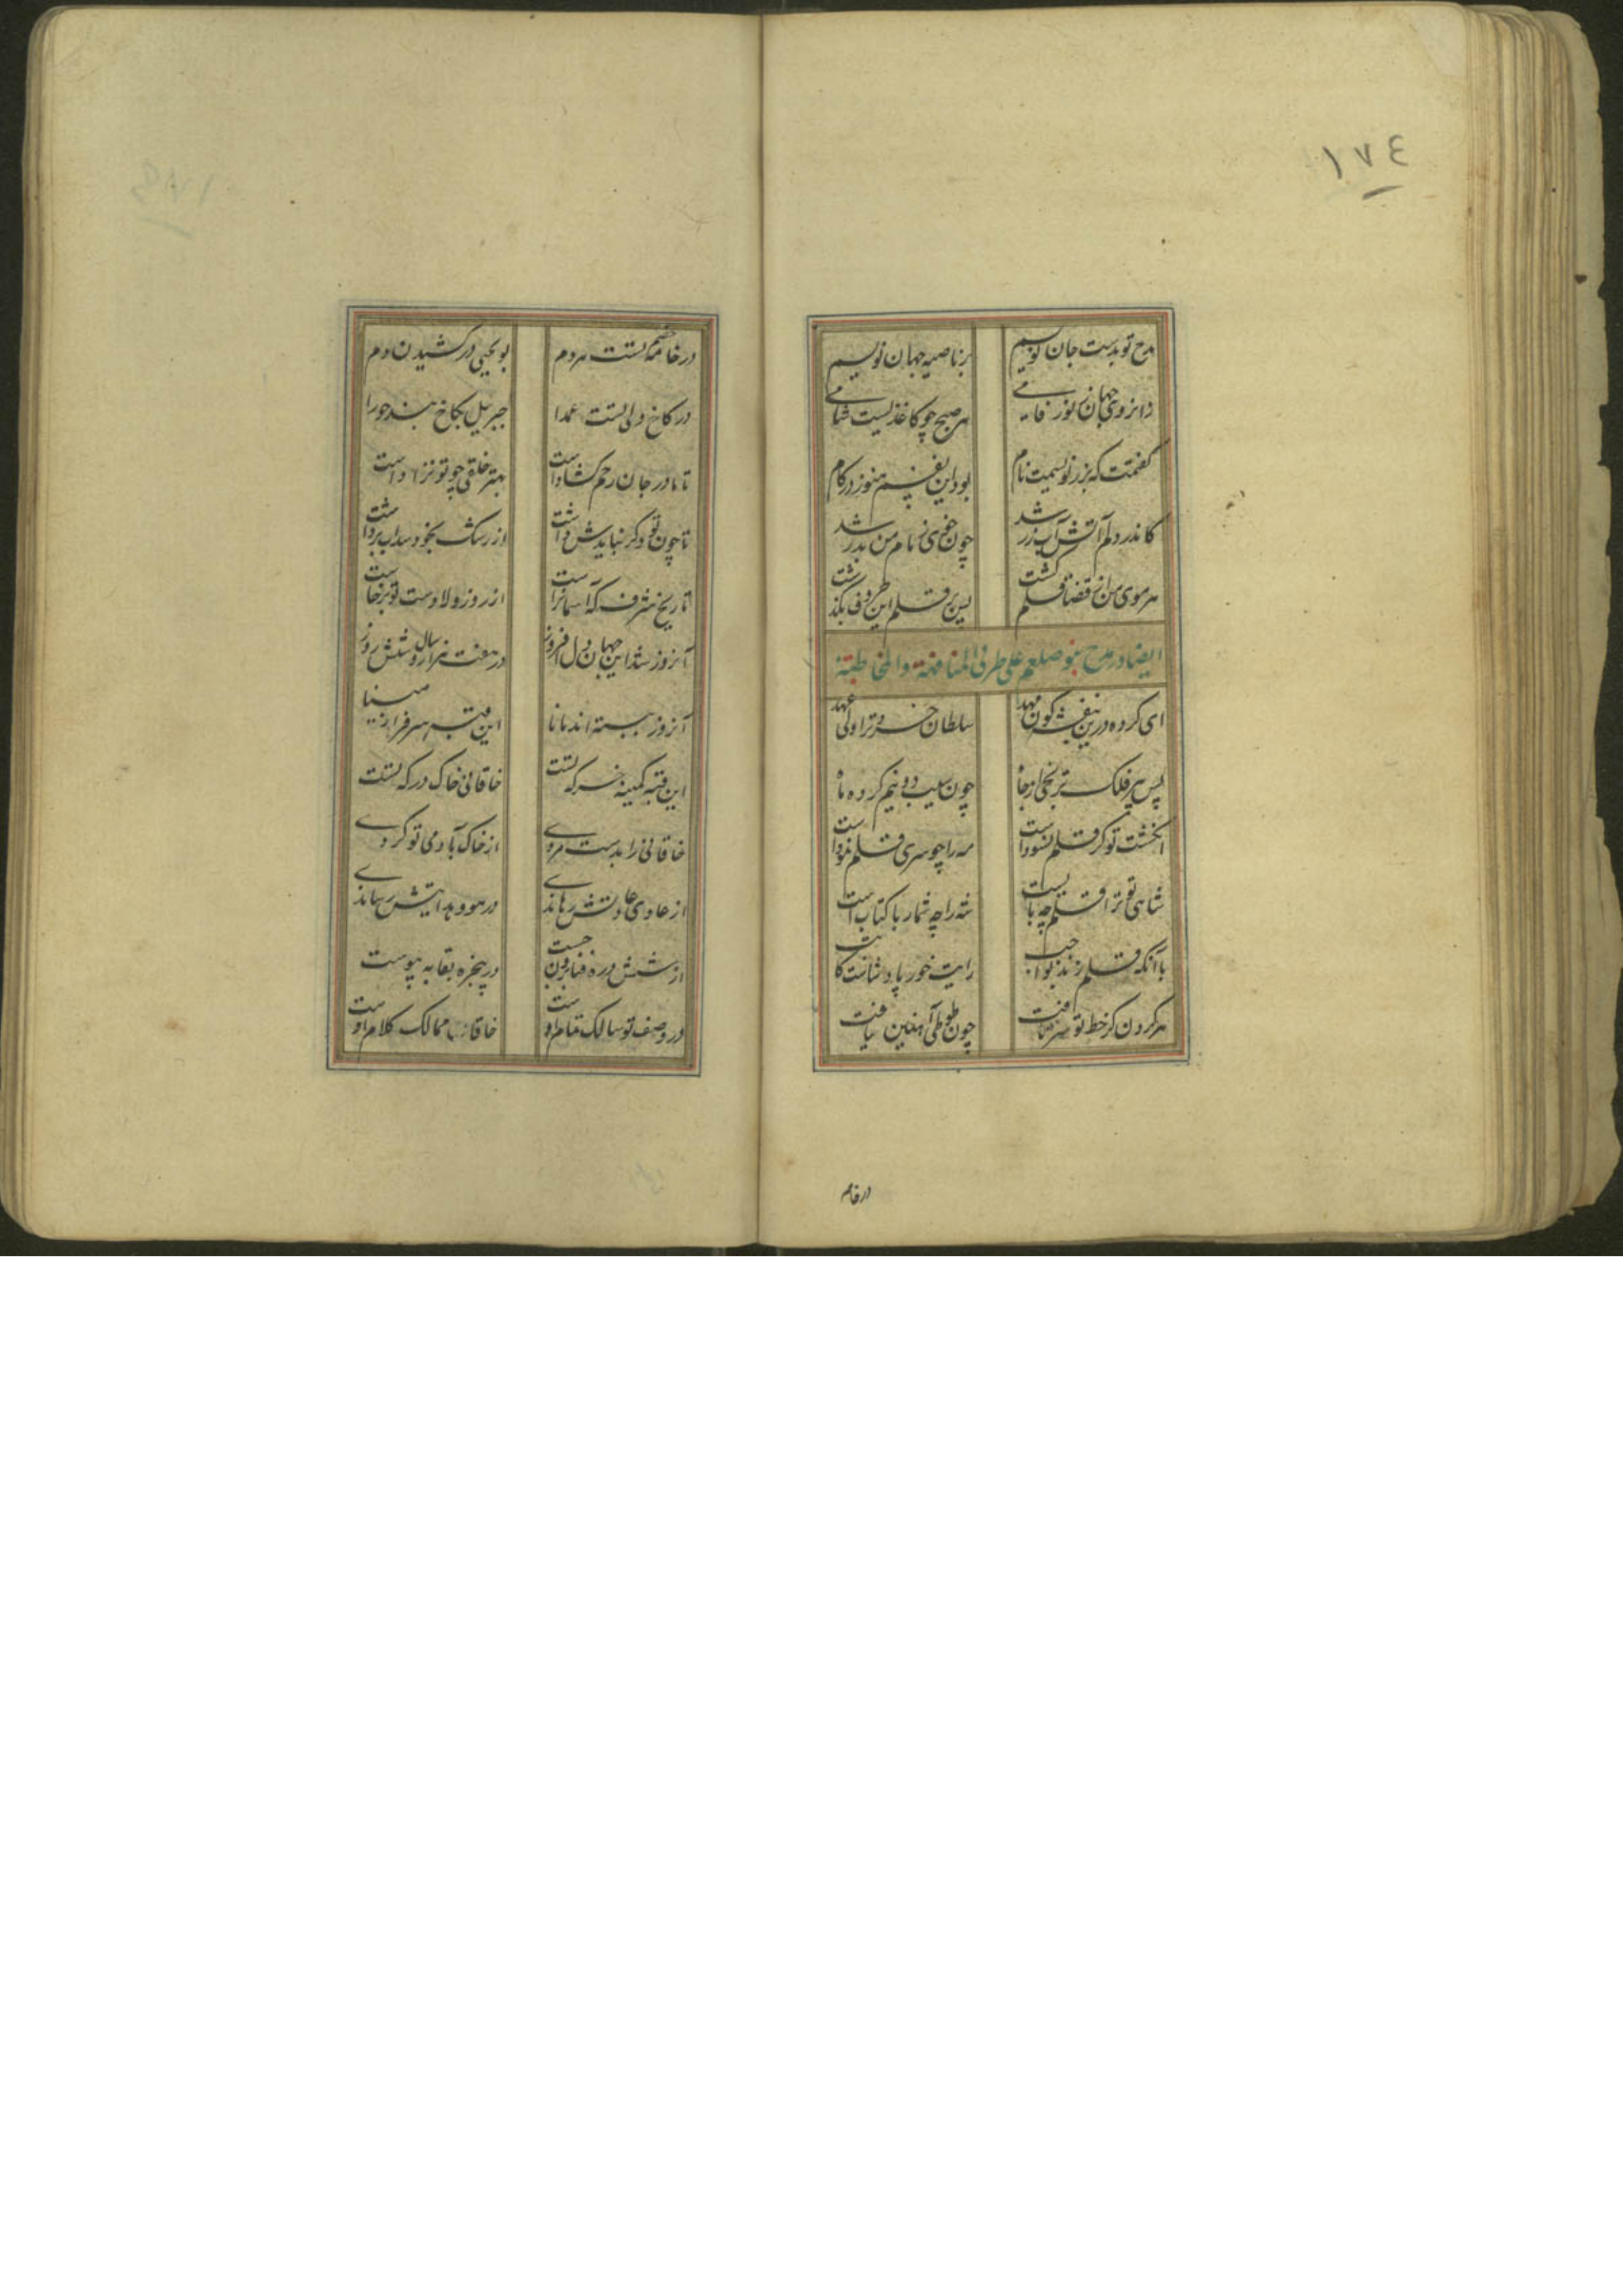 ١٧٤
مدح تو بدست جان نویسم بر ناصیه جهان نویسم
زانروی جهان نور فامی هر صبح چو کاغذیست شامی
گفتمت که بزر نویسمیت نام بود این نفسم هنوز در کام
کاندر دلم آتش آب زر شد چون خوی ز نام من بدر شد
هر موی من از قضا قلم گشت پس بر قلم این حروف بگذشت
ایضا در مدح نبی صلعم علی طریق المنافحة والمخاطبة
ای کرده درین بنفشه گون مهد سلطان خرد ترا ولی عهد
پس بر فلک ترنجی از جاه چون سیب دو نیم کرده ماه
انگشت تو گر قلم نسوداست مه را چو سر قلم نموداست
شاهی تو ترا قلم چه بابست شه را چه شمار با کتابست
با آنکه قلم زند بواجب رایت خور پادشاست کاتب
هر گردن کز خط تو سر تافت چون طوطی آهنین یافت
در خامه
در خامه خصم تست مردم بویحیی در کشیدن دم
در کاخ ولی تست عمدا جبریل بکاخ بند حورا
تا مادر جان رحم گشاداست بهتر خلقی چو تو نزاداست
تا چون تو دگر نبایدش داشت از رشک بخود سداب برداشت
تاریخ شرف که آسمانراست از روز ولادت تو برخاست
آنروز شد این جهان دل افروز در هفت هزار سال و شش روز
آنروز ببسته اند مانا این قبه سرفراز مینا
این قبه کمینه خرگه تست خاقانی خاک درگه تست
خاقانی را بدست مردی از خاک تو آدمی تو کردی
از عادی عادتش رهاندی در هود هدایتش رساندی
از شش دره فنا برون جست در پنجره بقا به پیوست
در وصف تو سالک تمام اوست خاقان ممالک کلام اوست